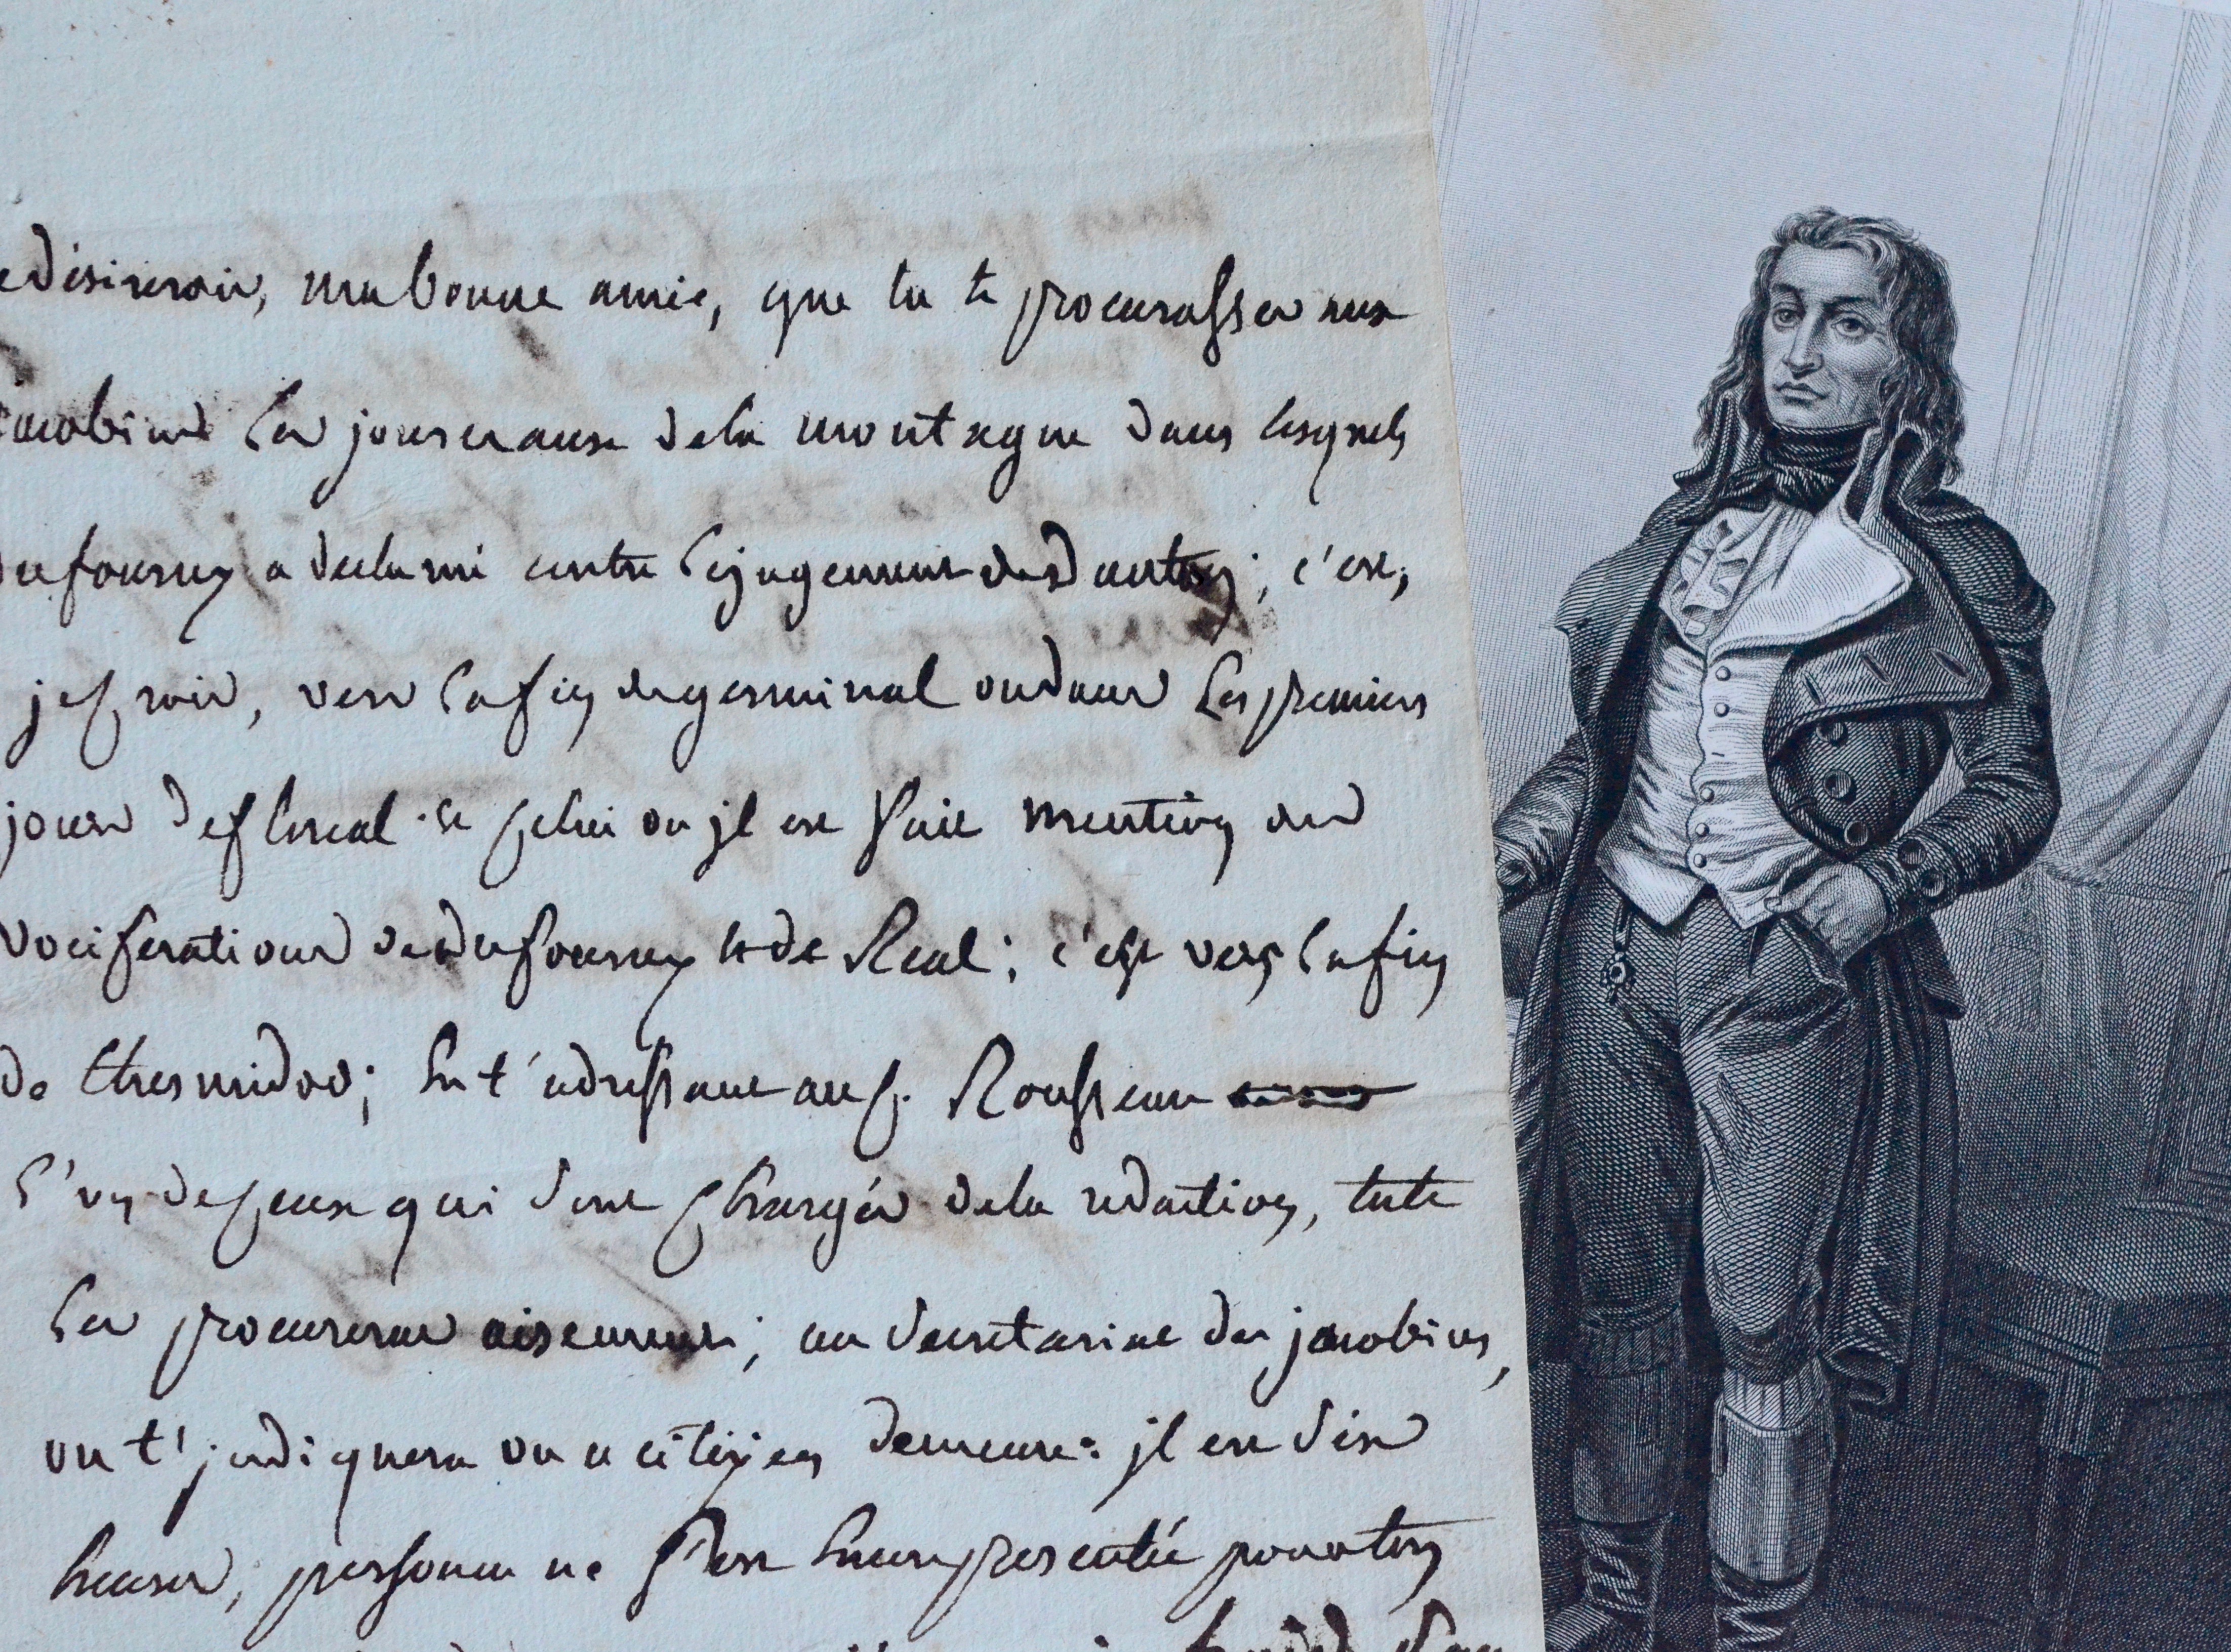 desirerois, ma bonne amie, que tu te procurasses aux
jacobins les journaux de la montagne dans lesquels
dufourny a declamé contre le jugement de danton; c'est,
je crois, vers la fin de germinal ou dans les premiers
jours de floreal. et celui ou jl est fait mention des
vociferations de dufourny et de Real; c'est vers la fin
de thermidor; en t'adressant au c. Rousseau
l'un de ceux qui sont chargés de la redaction, tu te
les procureras aisement; au secretariat des jacobins,
on t'jndiquera ou ce citoyen demeure: jl est dix
heures, personne ne s'est encore presenté pour